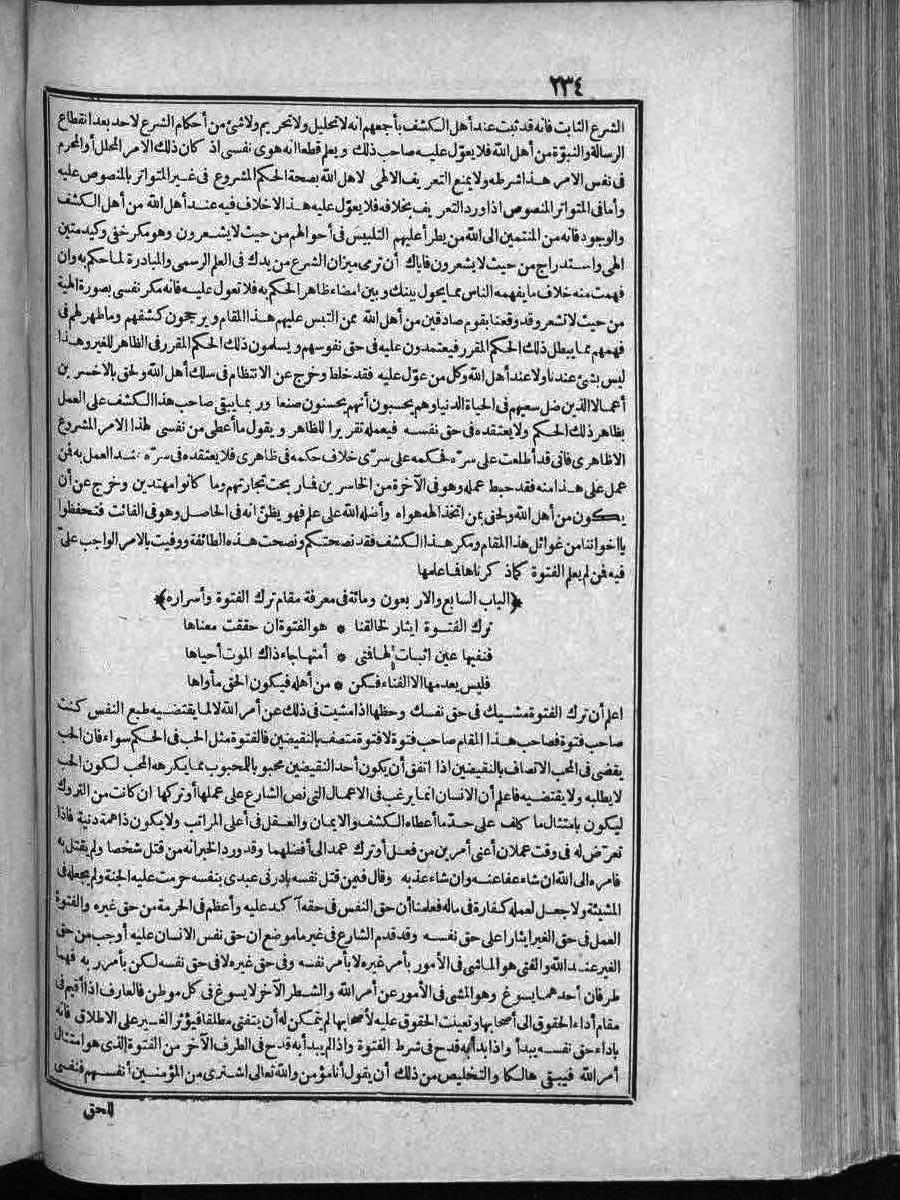 ٢٣٤
الشرع الثابت فانه قد ثبت عند أهل الكشف بأجعهم انه لا تحليل ولا تحريم ولا شئ من أحكام الشرع لاحد بعد انقطاع
الرسالة والنبوّة من أهل الله فلا يعوّل عليه صاحب ذلك ويعلم قطعا انه هوى نفسى اذ كان ذلك الامر المحلل أو المحرم
فى نفس الامر هذا شرطه ولا يمنع التعريف الالهى لاهل الله بصحة الحكم المشروع فى غير المتواتر بالمنصوص عليه
وأما فى المتواتر المنصوص اذا ورد التعريف بخلافه فلا يعوّل عليه هذا لا خلاف فيه عند أهل الله من أهل الكشف
والوجود فانه من المنتمين الى الله من يطرأ عليهم التلبيس فى أحوالهم من حيث لا يشعرون وهو مكر خفى وكيد متين
الهى واستدراج من حيث لا يشعرون فاياك أن ترمى ميزان الشرع من يدك فى العلم الرسمى والمبادرة لما حكم به وان
فهمت منه خلاف ما يفهمه الناس مما يحول بينك وبين امضاء ظاهر الحكم به فلا تعول عليه فانه مكر نفسى بصورة الهية
من حيث لا تشعر وقد وقعنا بقوم صادقين من أهل الله ممن التبس عليهم هذا المقام ويرجحون كشفهم وما ظهر لهم فى
فهمهم مما يبطل ذلك الحكم المقرر فيعتمدون عليه فى حق نفوسهم ويسلمون ذلك الحكم المقرر فى الظاهر للغير وهذا
ليس بشئ عندنا ولا عند أهل الله وكل من عوّل عليه فقد خلط وخرج عن الانتظام فى سلك أهل الله ولحق بالاخسرين
أعمالا الذين ضل سعيهم فى الحياة الدنيا وهم يحسبون أنهم يحسنون صنعا وربما يبقى صاحب هذا الكشف على العمل
بظاهر ذلك الحكم ولا يعتقده فى حق نفسه فيعمله تقريرا للظاهر ويقول ما أعطى من نفسى لهذا الامر المشروع
الا ظاهرى فانى قد أطلعت على سرّه فحكمه على سرّى خلاف حكمه فى ظاهرى فلا يعتقده فى سرّه عند العمل به فمن
عمل على هذا منه فقد حبط عمله وهو فى الآخرة من الخاسرين فما ربحت تجارتهم وما كانوا مهتدين وخرج عن أن
يكون من أهل الله ولحق بمن اتخذ الهه هواه وأضله الله على علم فهو يظنّ انه فى الحاصل وهو فى الفائت فتحفظوا
يا اخواننا من غوائل هذا المقام ومكر هذا الكشف فقد نصحتكم ونصحت هذه الطائفة ووفيت بالامر الواجب علىّ
فيه فمن لم يعلم الفتوة كما ذكرناها فما علمها
﴿الباب السابع والاربعون ومائة فى معرفة مقام ترك الفتوة وأسراره﴾
ترك الفتوة ايثار لخالقنا * هو الفتوة ان حققت معناها
فنفيها عين اثبات لها فمتى * أمتها جاءذاك الموت أحياها
فليس يعدمها الا الفناء فكن * من أهله فيكون الحق مأواها
اعلم أن ترك الفتوة مشيك فى حق نفسك وحظها اذا مشيت فى ذلك عن أمر الله لا لما يقتضيه طبع النفس كنت
صاحب فتوة فصاحب هذا المقام صاحب فتوة لا فتوة متصف بالنقيضين فالفتوة مثل الحب فى الحكم سواء فان الحب
يقضى فى المحب الاتصاف بالنقيضين اذا اتفق أن يكون أحد النقيضين محبوبا للمحبوب مما يكرهه المحب لكون الحب
لا يطلبه ولا يقتضيه فاعلم أن الانسان انما يرغب فى الاعمال التى نص الشارع على عملها أو تركها ان كانت من التروك
ليكون بامتثال ما كلف على حدّ ما أعطاه الكشف والايمان والعقل فى أعلى المراتب ولا يكون ذا همة دنية فاذا
تعرّض له فى وقت عملان أعنى أمرين من فعل أو ترك عمد الى أفضلهما وقد ورد الخبر انه من قتل شخصا ولم يقتل به
فامره الى الله ان شاء عفا عنه وان شاء عذبه وقال فمين قتل نفسه بادرنى عبدى بنفسه حرمت عليه الجنة ولم يجعله فى
المشيئة ولا جعل لعمله كفارة فى ماله فعلمنا أن حق النفس فى حقه آكد عليه وأعظم فى الحرمة من حق غيره والفتوة
العمل فى حق الغير ايثارا على حق نفسه وقد قدم الشارع فى غير ما موضع ان حق نفس الانسان عليه أوجب من حق
الغير عند الله والفتى هو الماشى فى الأمور بأمر غيره لا بأمر نفسه وفى حق غيره لا فى حق نفسه لكن بأمر ربه فهما
طرفان أحدهما يسوغ وهو المشى فى الأمور عن أمر الله والشطر الآخر لا يسوغ فى كل موطن فالعارف اذا أقيم فى
مقام أداء الحقوق الى أصحابها وتعينت الحقوق عليه لأصحابها لم يتمكن له أن يتفتى مطلقا فيؤثر الغير على الاطلاق فانه
باداء حق نفسه يبدأ واذا بدأ به قدح فى شرط الفتوة واذا لم يبدأ به قدح فى الطرف الآخر من الفتوة الذى هو امتثال
أمر الله فيبقى هالكا والتخليص من ذلك أن يقول أنا مؤمن والله تعالى اشترى من المؤمنين أنفسهم فنفسى
للحق